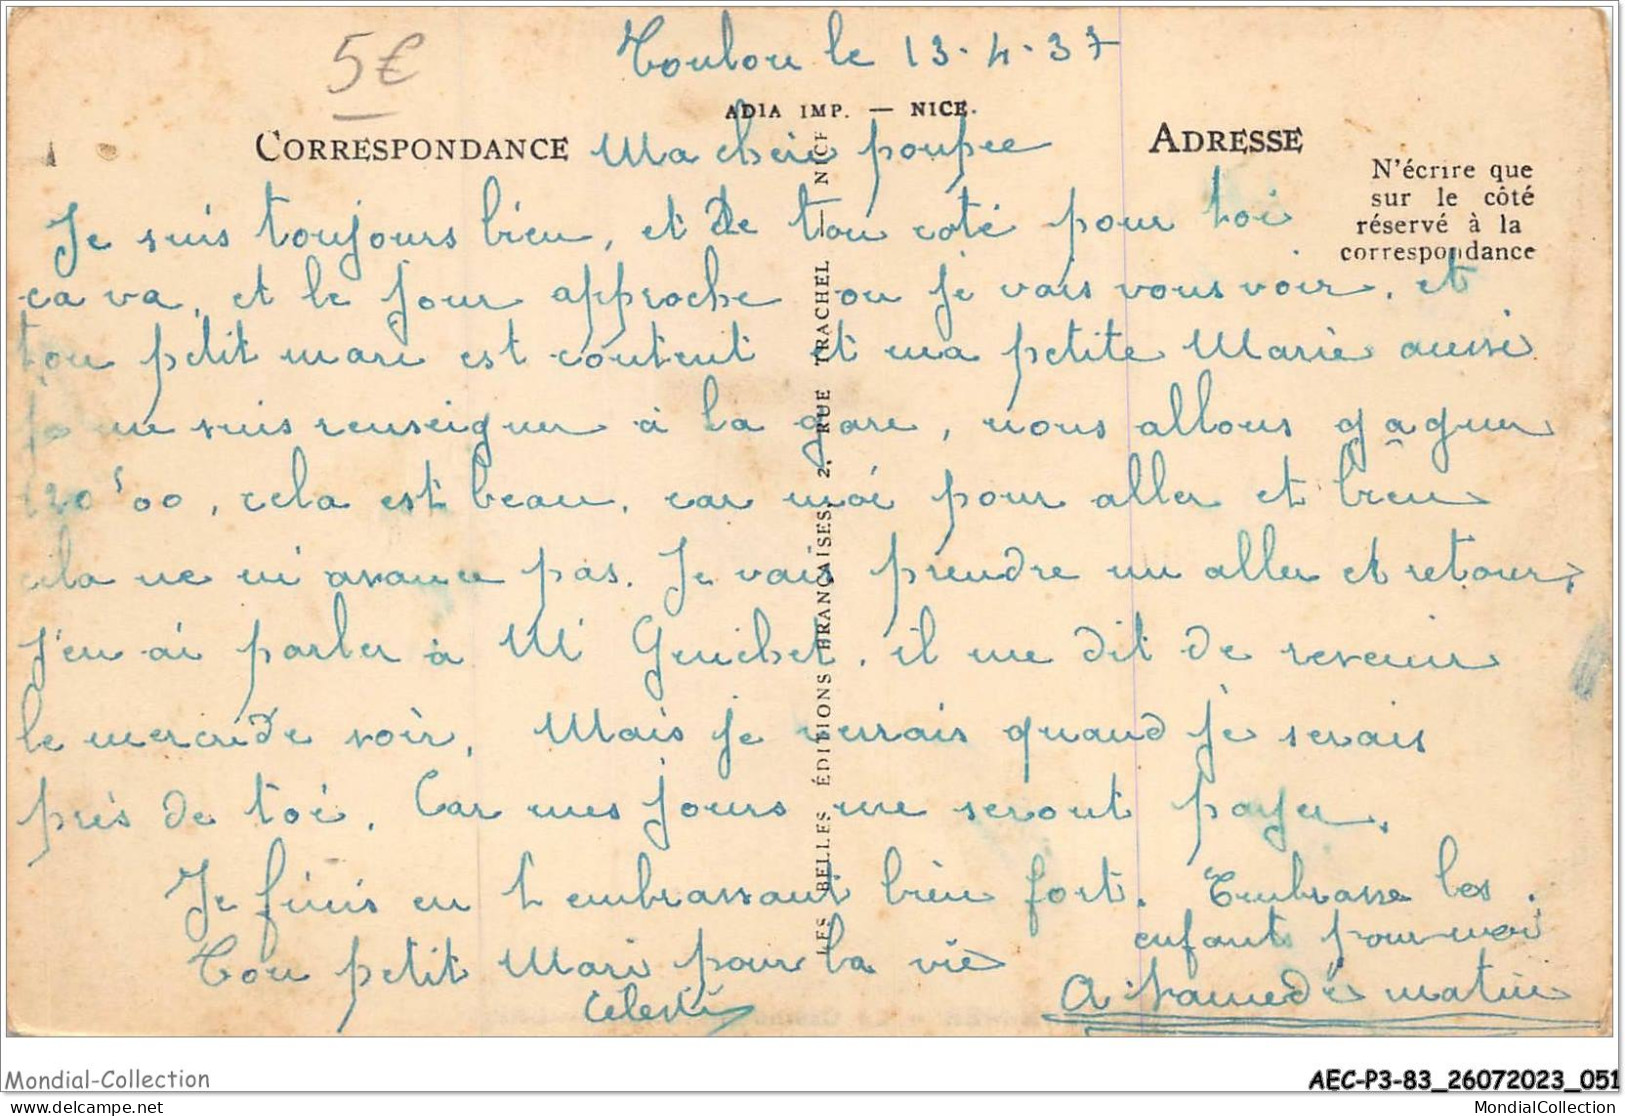 5€
Toulon le 13-4-37
ADIA IMP. — NICE.
CORRESPONDANCE
ADRESSE
N'écrire que
sur le côté
réservé à la
correspondance
LES BELLES ÉDITIONS FRANÇAISES, 2, RUE TRACHEL — NICE
Ma cherie poupee
Je suis toujours bien, et de ton coté pour toi
ca va, et le jour approche ou je vais vous voir, et
ton petit mari est content et ma petite Marie aussi
je me suis renseigner à la gare, nous allons gagner
120 ᶠ00, cela est beau, car moi pour aller et bien
cela ne m'avance pas. Je vais prendre un aller et retour,
J'en ai parler à Mʳ Guichet, il me dit de revenir
le mercredi voir. Mais je verrais quand je serais
près de toi. Car mes jours me seront payer.
Je finis en t'embrassant bien fort. Embrasse les
enfants pour moi
Ton petit Mari pour la vie
A samedi matin
Celestin
Mondial-Collection
AEC-P3-83_26072023_051
delcampe.net
MondialCollection